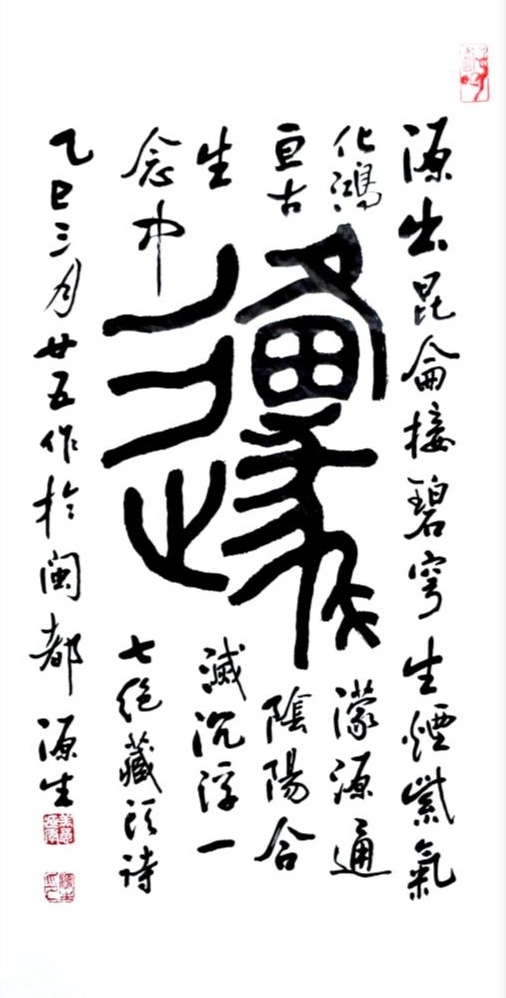 邍
源出昆侖接碧穹生煙紫氣
化鴻濛源通
亘古陰陽合
生滅沉浮一
念中七絕藏頭詩
乙巳三月廿五作於閩都源生